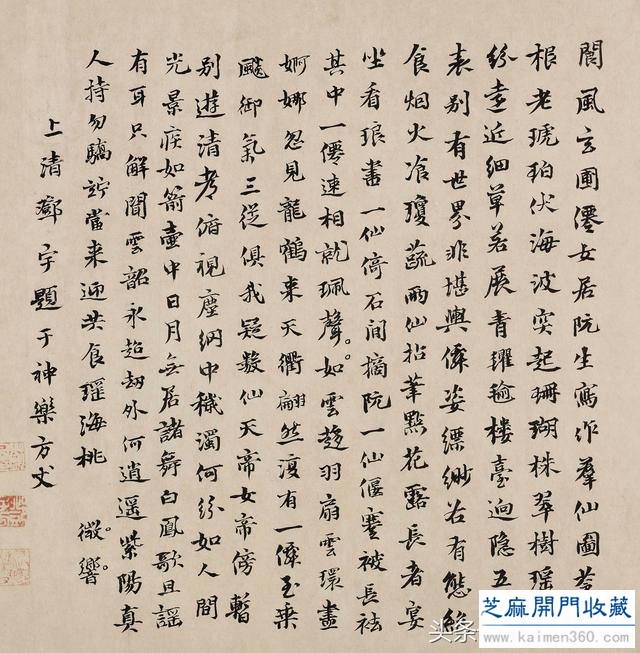 閬風玄圃僊女居阮生寫作羣仙圖蒼
根老琥珀伏海波突起珊瑚株翠樹瑶
紛壺近細草若展青㲯毹樓臺迥隐五
表别有世界非堪輿僊姿縹緲各有態絶
食烟火飡瓊蔬兩仙拈筆點花露長者宴
坐看琅書一仙倚石間摘阮一仙偃蹇被長袪
其中一僊速相就珮聲如雲趍羽扇雲環盡
婀娜忽見龍鶴來天衢翩然渡有一僊至乗
飈御氣三従俱我疑数仙天帝女帝傍暫
别遊清孝俯視塵網中穢濁何紛如人間
光景疾如箭壺中日月無居諸舞白鳳歌且謡
有耳只解聞雲韶永超劫外何逍遥紫陽真
人持勿驕竚當来迎共食瑶海桃 微響
上清鄧宇題于神樂方丈
头条
芝麻開門收藏
www.kaimen360.com